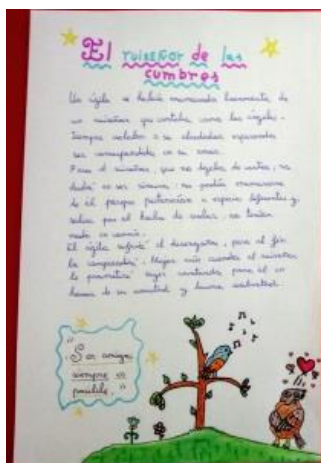 El ruiseñor de las
cumbres
Un águila se había enamorado locamente de
un ruiseñor que cantaba como los ángeles.
Siempre volaba a su alrededor esperando
ser correspondida en su amor.
Pero el ruiseñor, que no dejaba de cantar, no
dudó en ser sincero, no podía enamorarse
de él porque pertenecían a especies diferentes y
salvo por el hecho de volar, no tenían
nada en común.
El águila sufrió el desengaño, pero al fin
lo comprendió. Mejor aún cuando el ruiseñor
le prometió seguir cantando para él en
honor de su amistad y buena voluntad.
"Ser amigos
siempre es
posible."